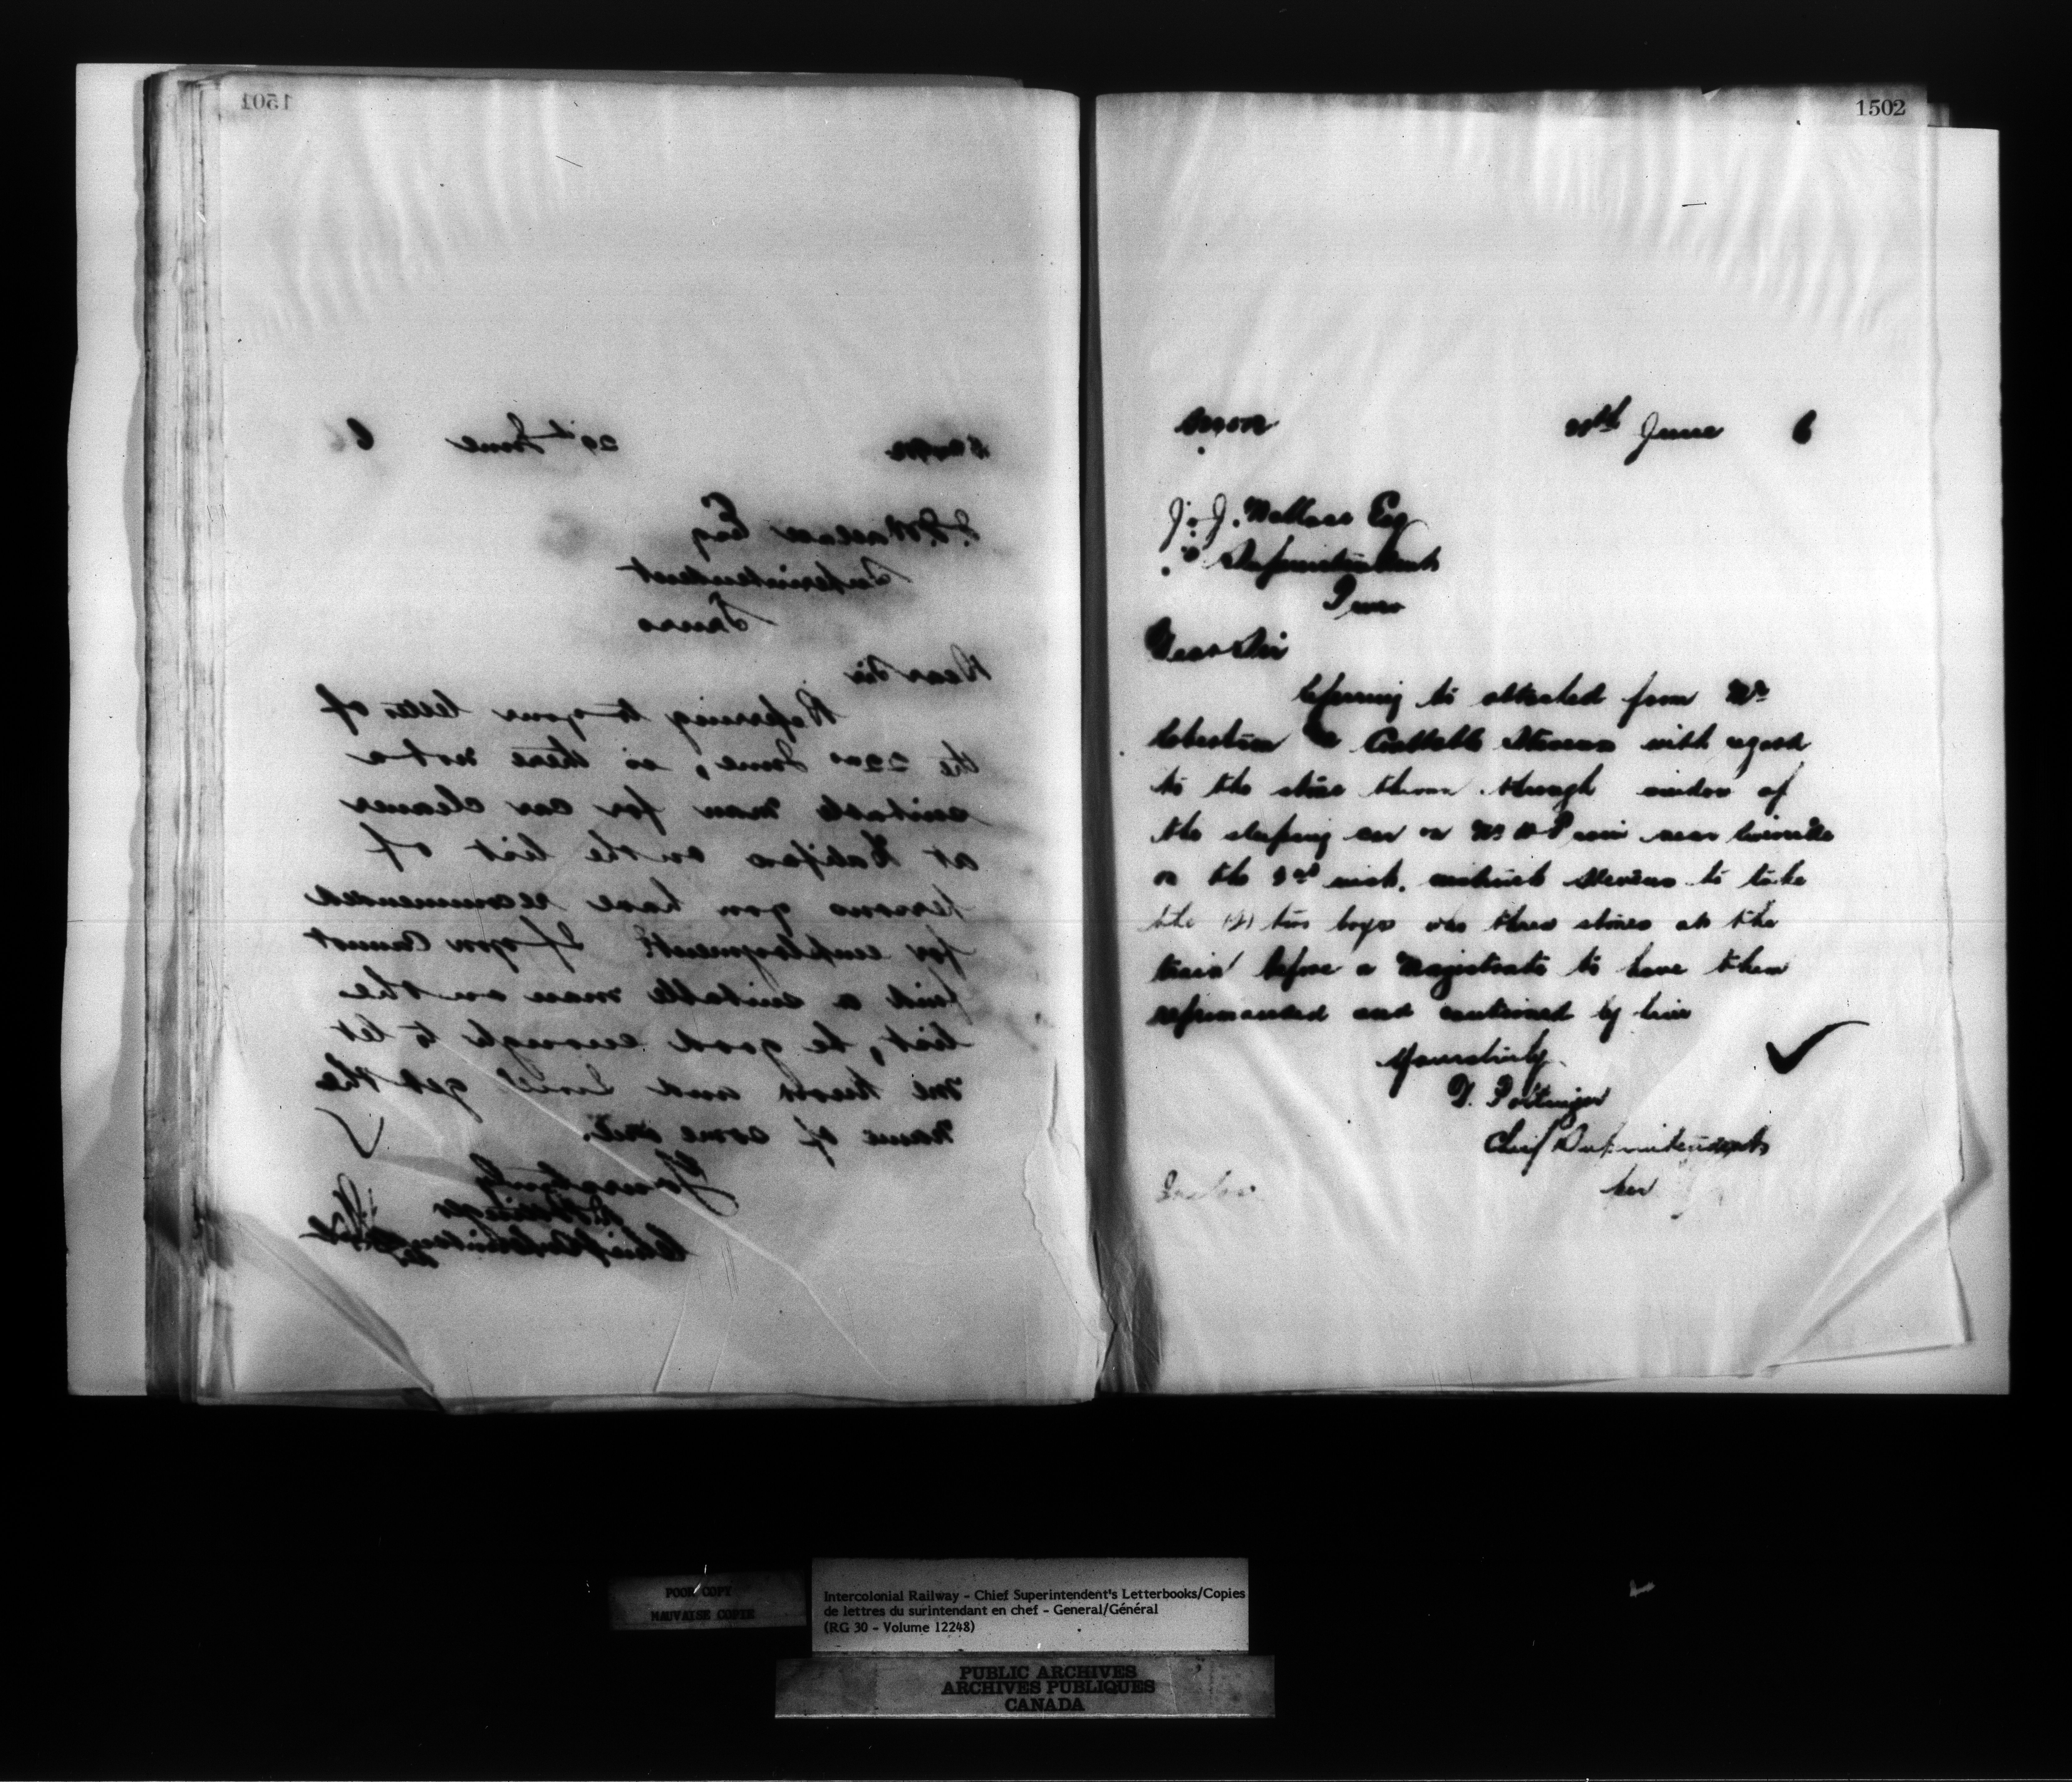 1501
29th June 6
J. J. Wallace Esq
Superintendent
Truro
Dear Sir
Referring to your letter of
the 22nd June, is there not a
suitable man for car cleaner
at Halifax on the list of
persons you have recommended
for employment? If you cannot
find a suitable man on the
list, be good enough to let
me know and I will get the
name of some one.
Yours truly
D. Pottinger
Chief Superintendent
1502
June 6
J. J. Wallace Esq
Superintendent
Truro
Dear Sir
Referring to attached from Mr
Robertson Constable Stevens with regard
to the stone thrown through window of
the sleeping car on near
on the 3rd inst. instruct Stevens to take
the two boys who threw stones at the
train before a Magistrate to have them
reprimanded and cautioned by him
Yours truly
D. Pottinger
Chief Superintendent
POOR COPY
MAUVAISE COPIE
Intercolonial Railway - Chief Superintendent's Letterbooks/Copies
de lettres du surintendant en chef - General/Général
(RG 30 - Volume 12248)
PUBLIC ARCHIVES
ARCHIVES PUBLIQUES
CANADA